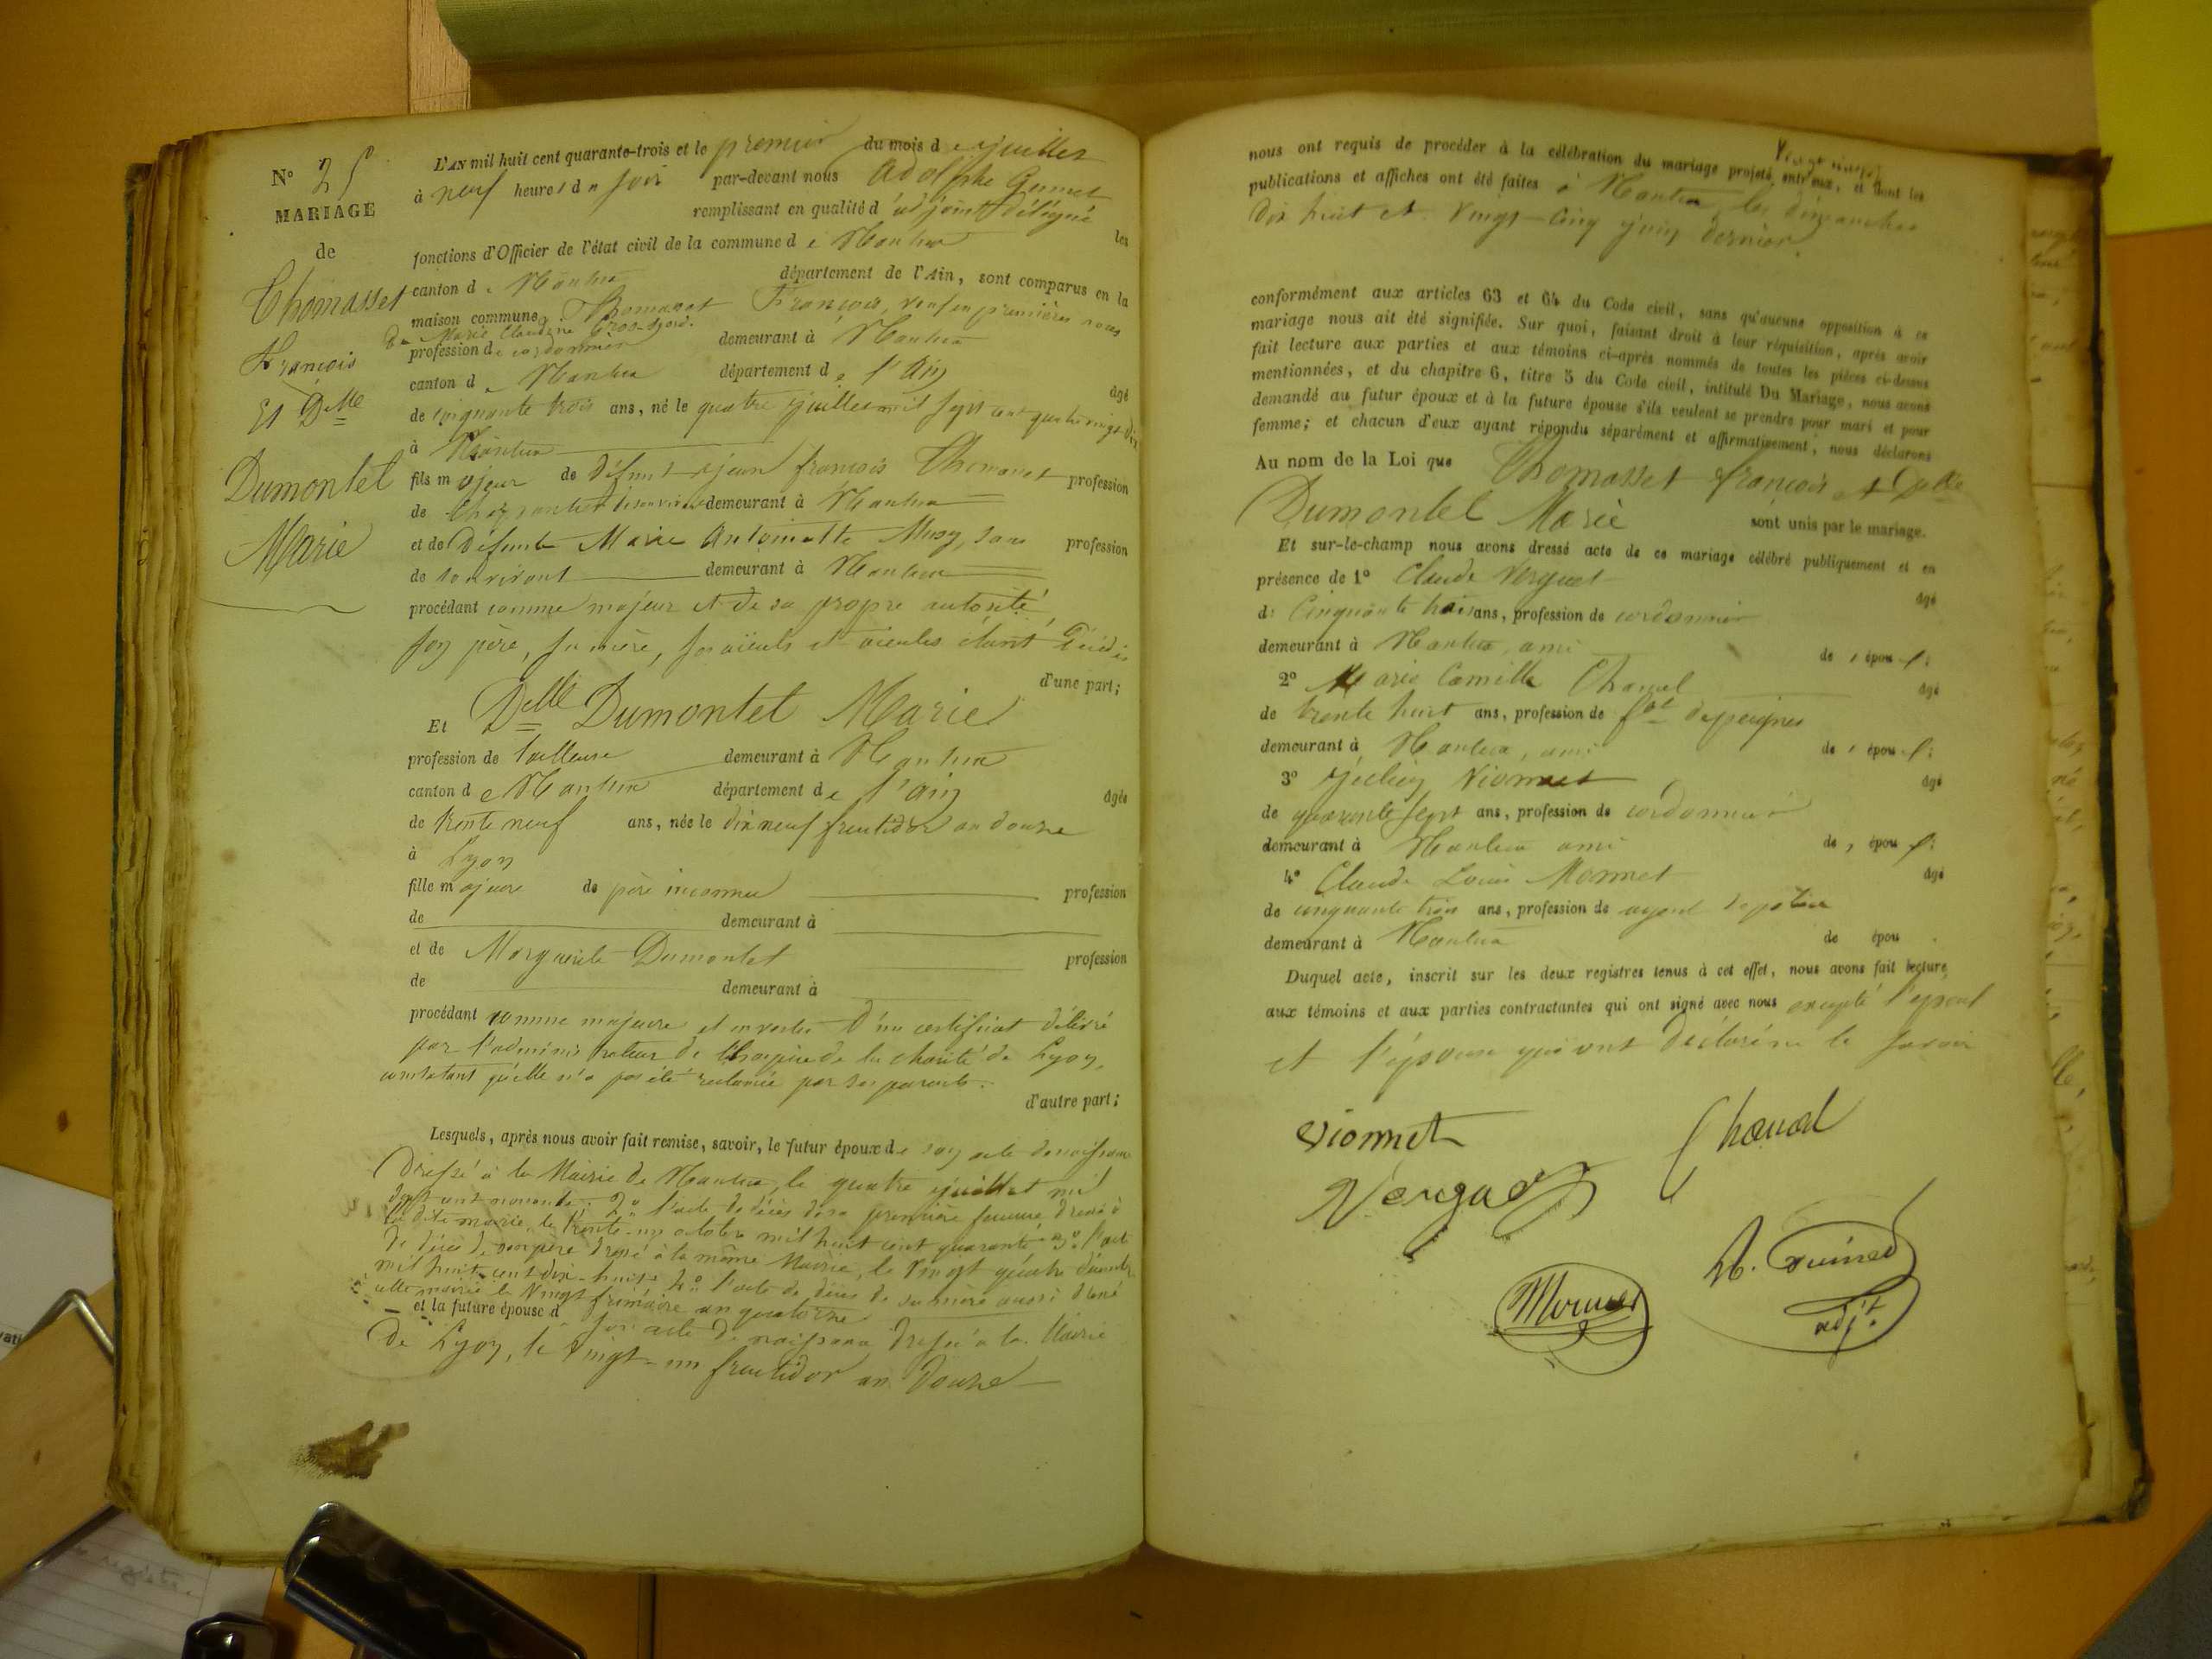 N° 25
MARIAGE
de
Thomasset
François
Et Dlle
Dumontel
Marie
L'AN mil huit cent quarante-trois et le premier du mois de juillet
à neuf heures du soir par-devant nous Adolphe
remplissant en qualité d'adjoint délégué les
fonctions d'Officier de l'état civil de la commune de Nantua
canton de Nantua département de l'Ain, sont comparus en la
maison commune, Thomasset François, veuf en premières noces
de Marie Claudine
profession de cordonnier demeurant à Nantua
canton de Nantua département de l'Ain âgé
de cinquante trois ans, né le quatre juillet mil sept cent quatre vingt dix
à Nantua
fils majeur de défunt jean françois Thomasset profession
de demeurant à Nantua
et de Défunte Marie Antoinette Musy, sans profession
de son vivant demeurant à Nantua
procédant comme majeur et de sa propre autorité,
son père, sa mère, ses aïeuls et aïeules étant décédés
d'une part;
Et Dlle Dumontel Marie
profession de tailleuse demeurant à Nantua
canton de Nantua département de l'Ain âgée
de trente neuf ans, née le dix neuf fructidor an douze
à Lyon
fille majeure de père inconnu profession
de demeurant à
et de Marguerite Dumontel profession
de demeurant à
procédant comme majeure et en vertu d'un certificat délivré
par l'administrateur de l'hospice de la charité de Lyon,
constatant qu'elle n'a pas été réclamée par ses parents.
d'autre part;
Lesquels, après nous avoir fait remise, savoir, le futur époux de son acte de naissance
Dressé à la Mairie de Nantua, le quatre juillet mil
sept cent nonante; 2° l'acte de décès de sa première femme, dressé à
la dite mairie, le trente-un octobre mil huit cent quarante 3° l'acte
de décès de son père dressé à la même Mairie, le vingt quatre décembre
mil huit cent dix-huit; 4° l'acte de décès de sa mère aussi dressé
à cette mairie le vingt frimaire an quatorze
et la future épouse d son acte de naissance dressé à la Mairie
de Lyon, le vingt-un fructidor an douze
nous ont requis de procéder à la célébration du mariage projeté entr'eux, et dont les
publications et affiches ont été faites à Nantua, les dimanches
dix huit et vingt-cinq juin dernier
conformément aux articles 63 et 64 du Code civil, sans qu'aucune opposition à ce
mariage nous ait été signifiée. Sur quoi, faisant droit à leur réquisition, après avoir
fait lecture aux parties et aux témoins ci-après nommés de toutes les pièces ci-dessus
mentionnées, et du chapitre 6, titre 5 du Code civil, intitulé Du Mariage, nous avons
demandé au futur époux et à la future épouse s'ils veulent se prendre pour mari et pour
femme; et chacun d'eux ayant répondu séparément et affirmativement, nous déclarons
Au nom de la Loi que Thomasset françois et Delle
Dumontel Marie sont unis par le mariage.
Et sur-le-champ nous avons dressé acte de ce mariage célébré publiquement et en
présence de 1° Claude Verguet âgé
de Cinquante trois ans, profession de cordonnier
demeurant à Nantua, ami de l'époux;
2° Marie Camille Chanal âgé
de trente huit ans, profession de fbt de peignes
demeurant à Nantua, ami de l'époux;
3° Julien Vionnet âgé
de quarante sept ans, profession de cordonnier
demeurant à Nantua ami de l'époux;
4° Claude Louis Monnet âgé
de cinquante trois ans, profession de agent de police
demeurant à Nantua de épou .
Duquel acte, inscrit sur les deux registres tenus à cet effet, nous avons fait lecture
aux témoins et aux parties contractantes qui ont signé avec nous excepté l'époux
et l'épouse qui ont déclaré ne le savoir
Vionnet
Chanal
Verguet
Monnet
adjt.